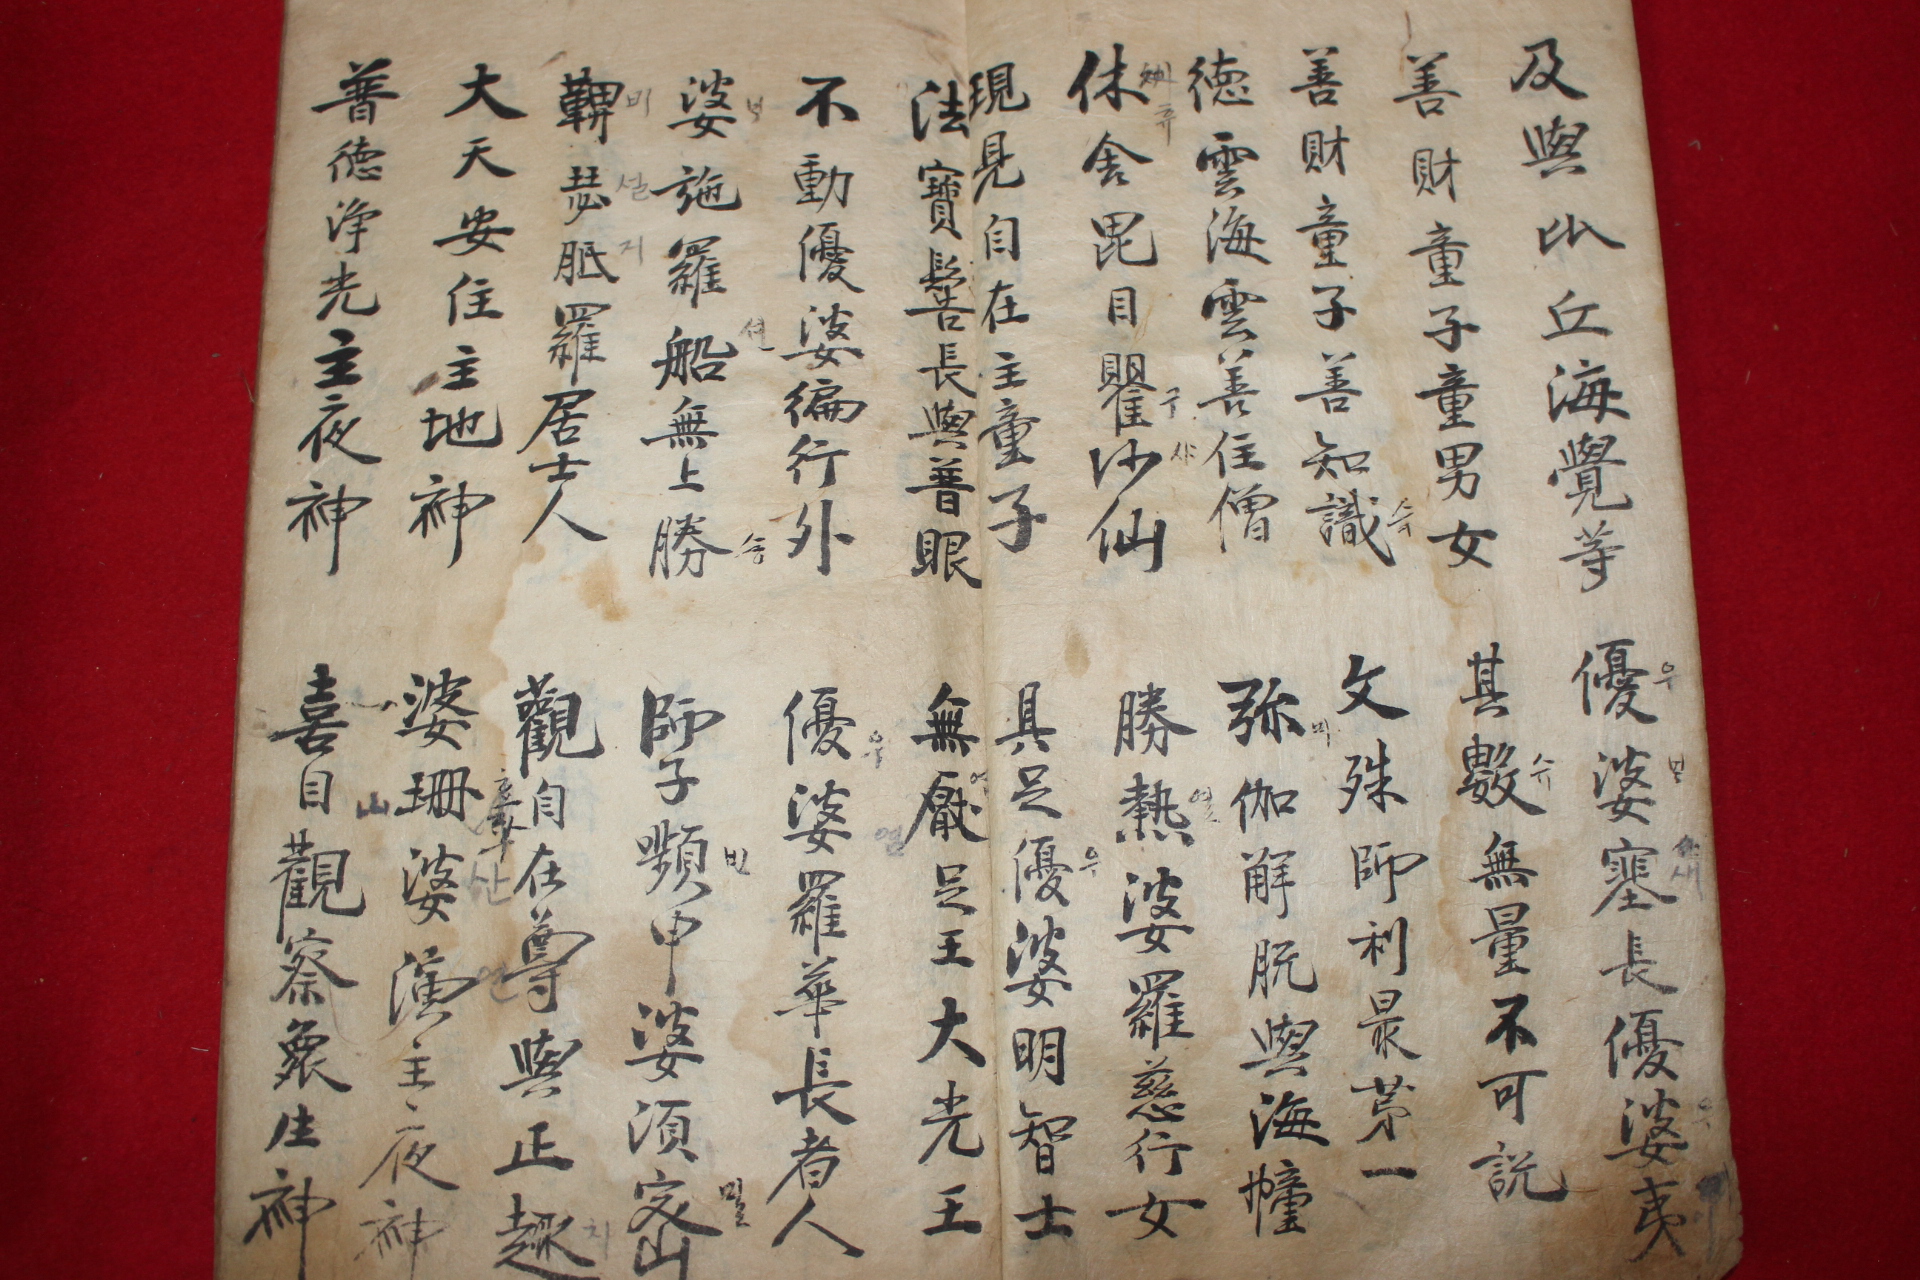 及與比丘海覺等
優婆塞長優婆夷
善財童子童男女
其數無量不可説
善財童子善知識
文殊師利最苐一
徳雲海雲善住僧
弥伽解脱與海幢
休舍毘目瞿沙仙
勝熱婆羅慈行女
現見自在主童子
具足優婆明智士
法寶髻長與普眼
無厭足王大光王
不動優婆徧行外
優婆羅華長者人
婆施羅船無上勝
師子嚬申婆須密
鞞瑟胝羅居士人
觀自在尊與正趣
大天安住主地神
婆珊婆演主夜神
普徳浄光主夜神
喜目觀察衆生神